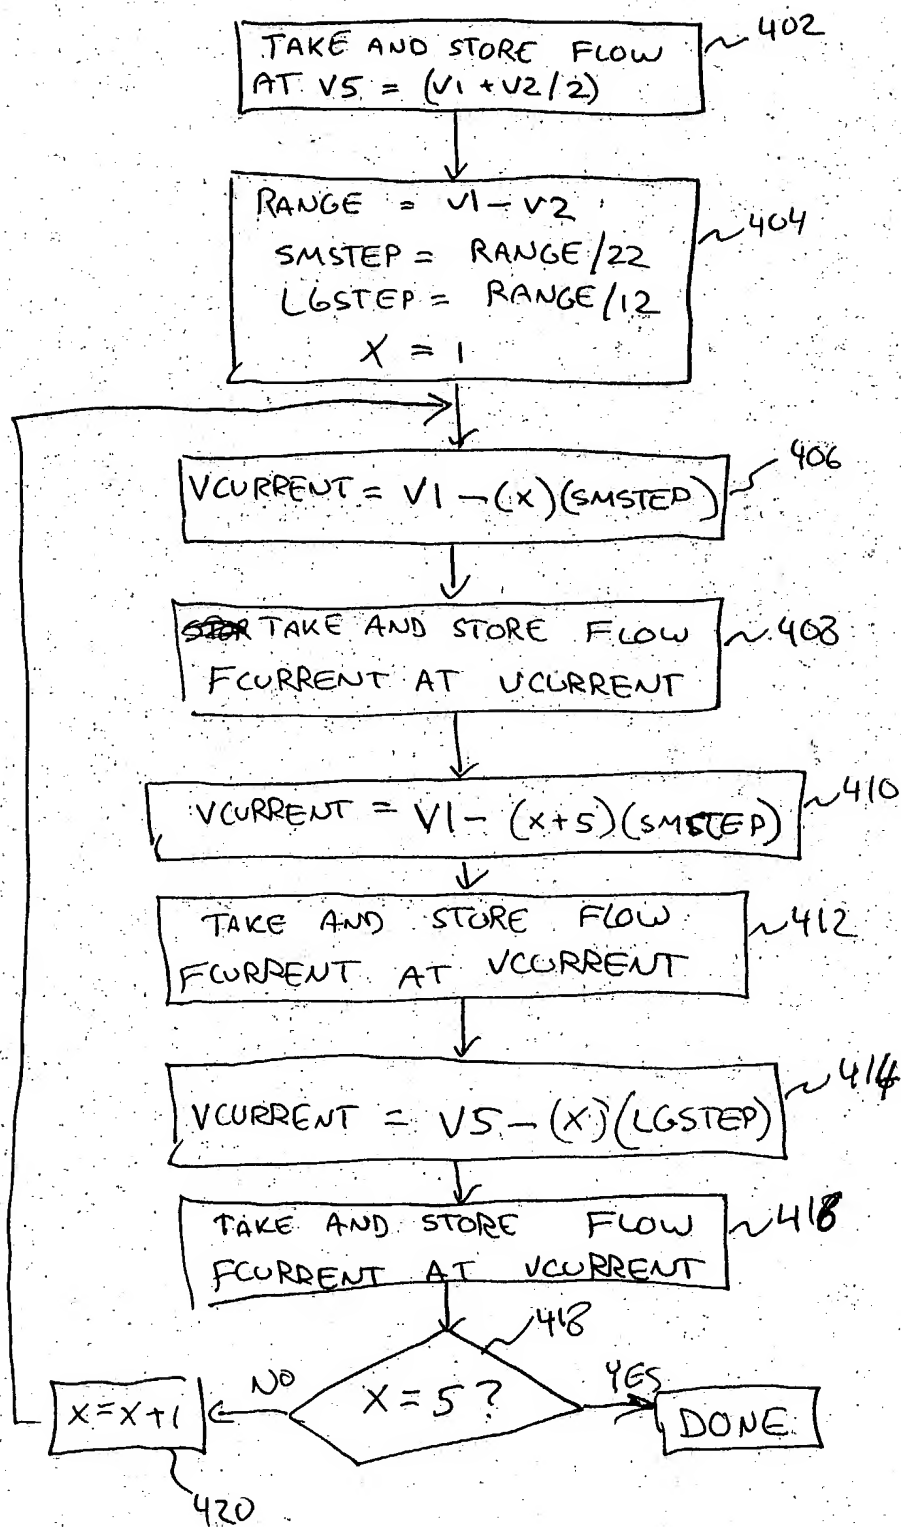 TAKE AND STORE FLOW
AT V5 = (V1 + V2/2)
402
RANGE = V1 - V2
SMSTEP = RANGE/22
LGSTEP = RANGE/12
X = 1
404
VCURRENT = V1 - (X)(SMSTEP)
406
TAKE AND STORE FLOW
FCURRENT AT VCURRENT
408
VCURRENT = V1 - (X+5)(SMSTEP)
410
TAKE AND STORE FLOW
FCURRENT AT VCURRENT
412
VCURRENT = V5 - (X)(LGSTEP)
414
TAKE AND STORE FLOW
FCURRENT AT VCURRENT
418
X = 5?
NO
YES
X=X+1
DONE
420